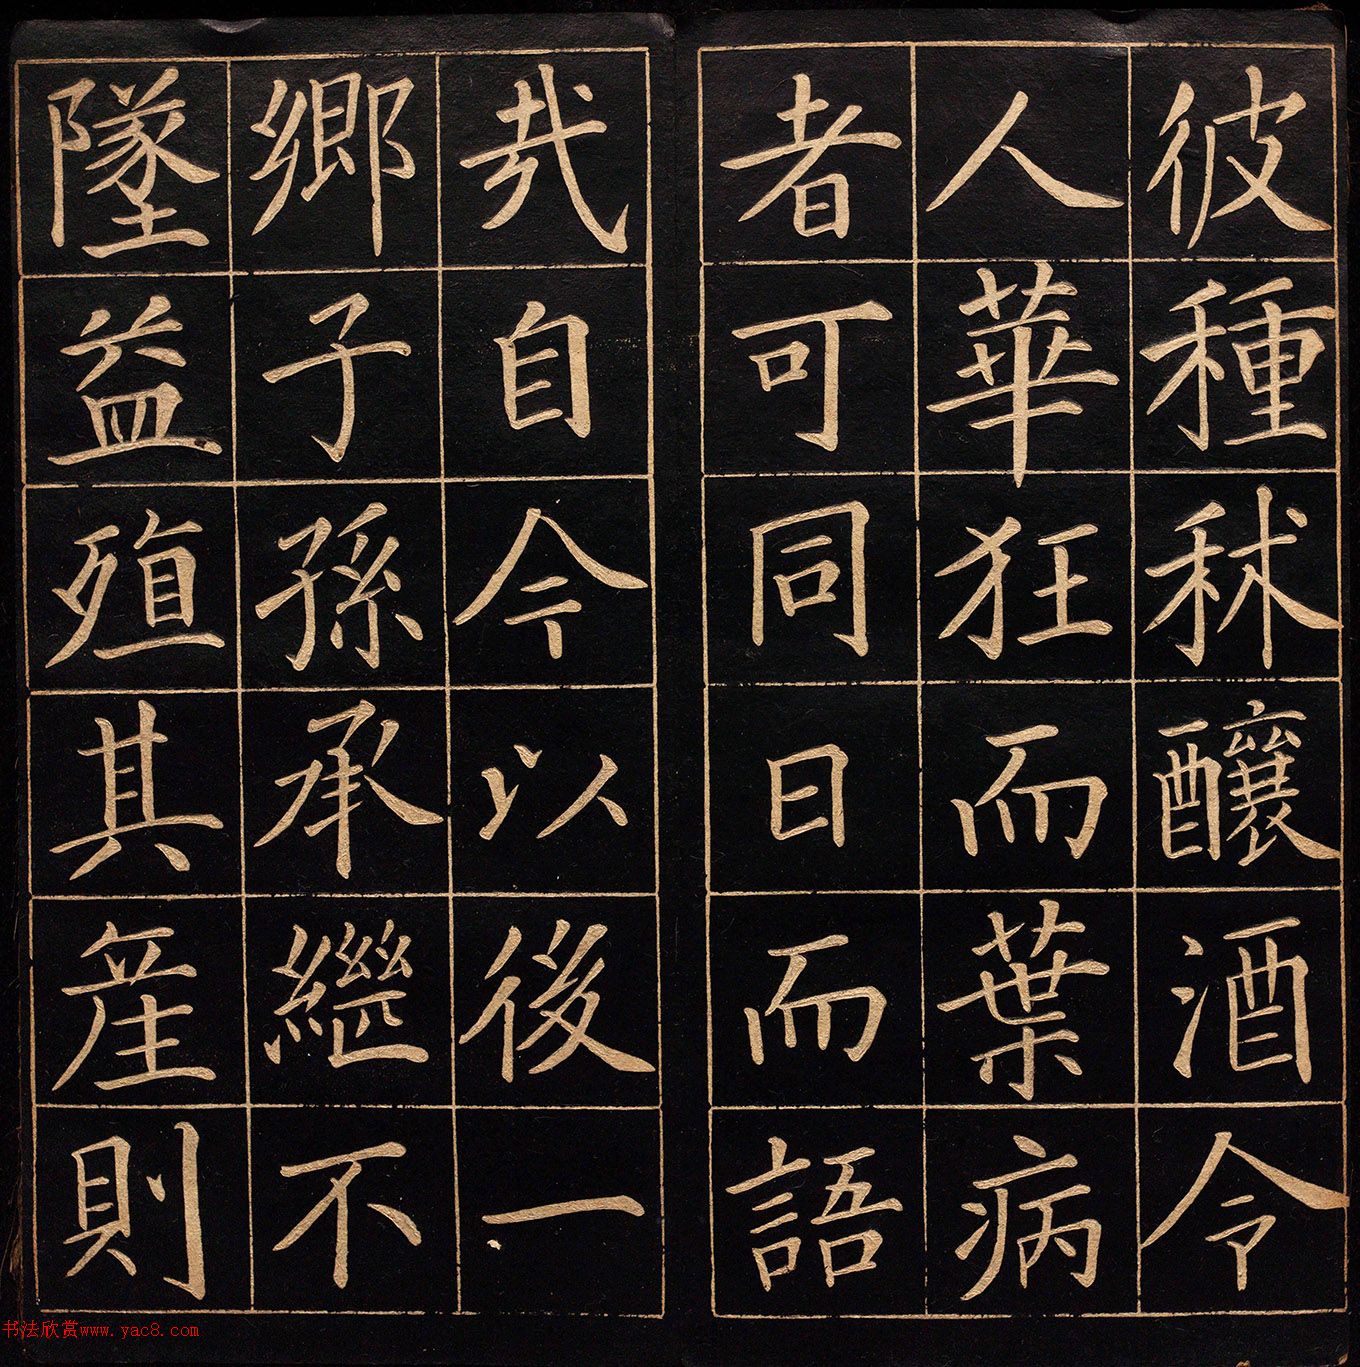 彼種秫釀酒令
人華狂而葉病
者可同日而語
㢤自今以後一
鄉子孫承繼不
墜益殖其産則
书法欣赏www.yac8.com